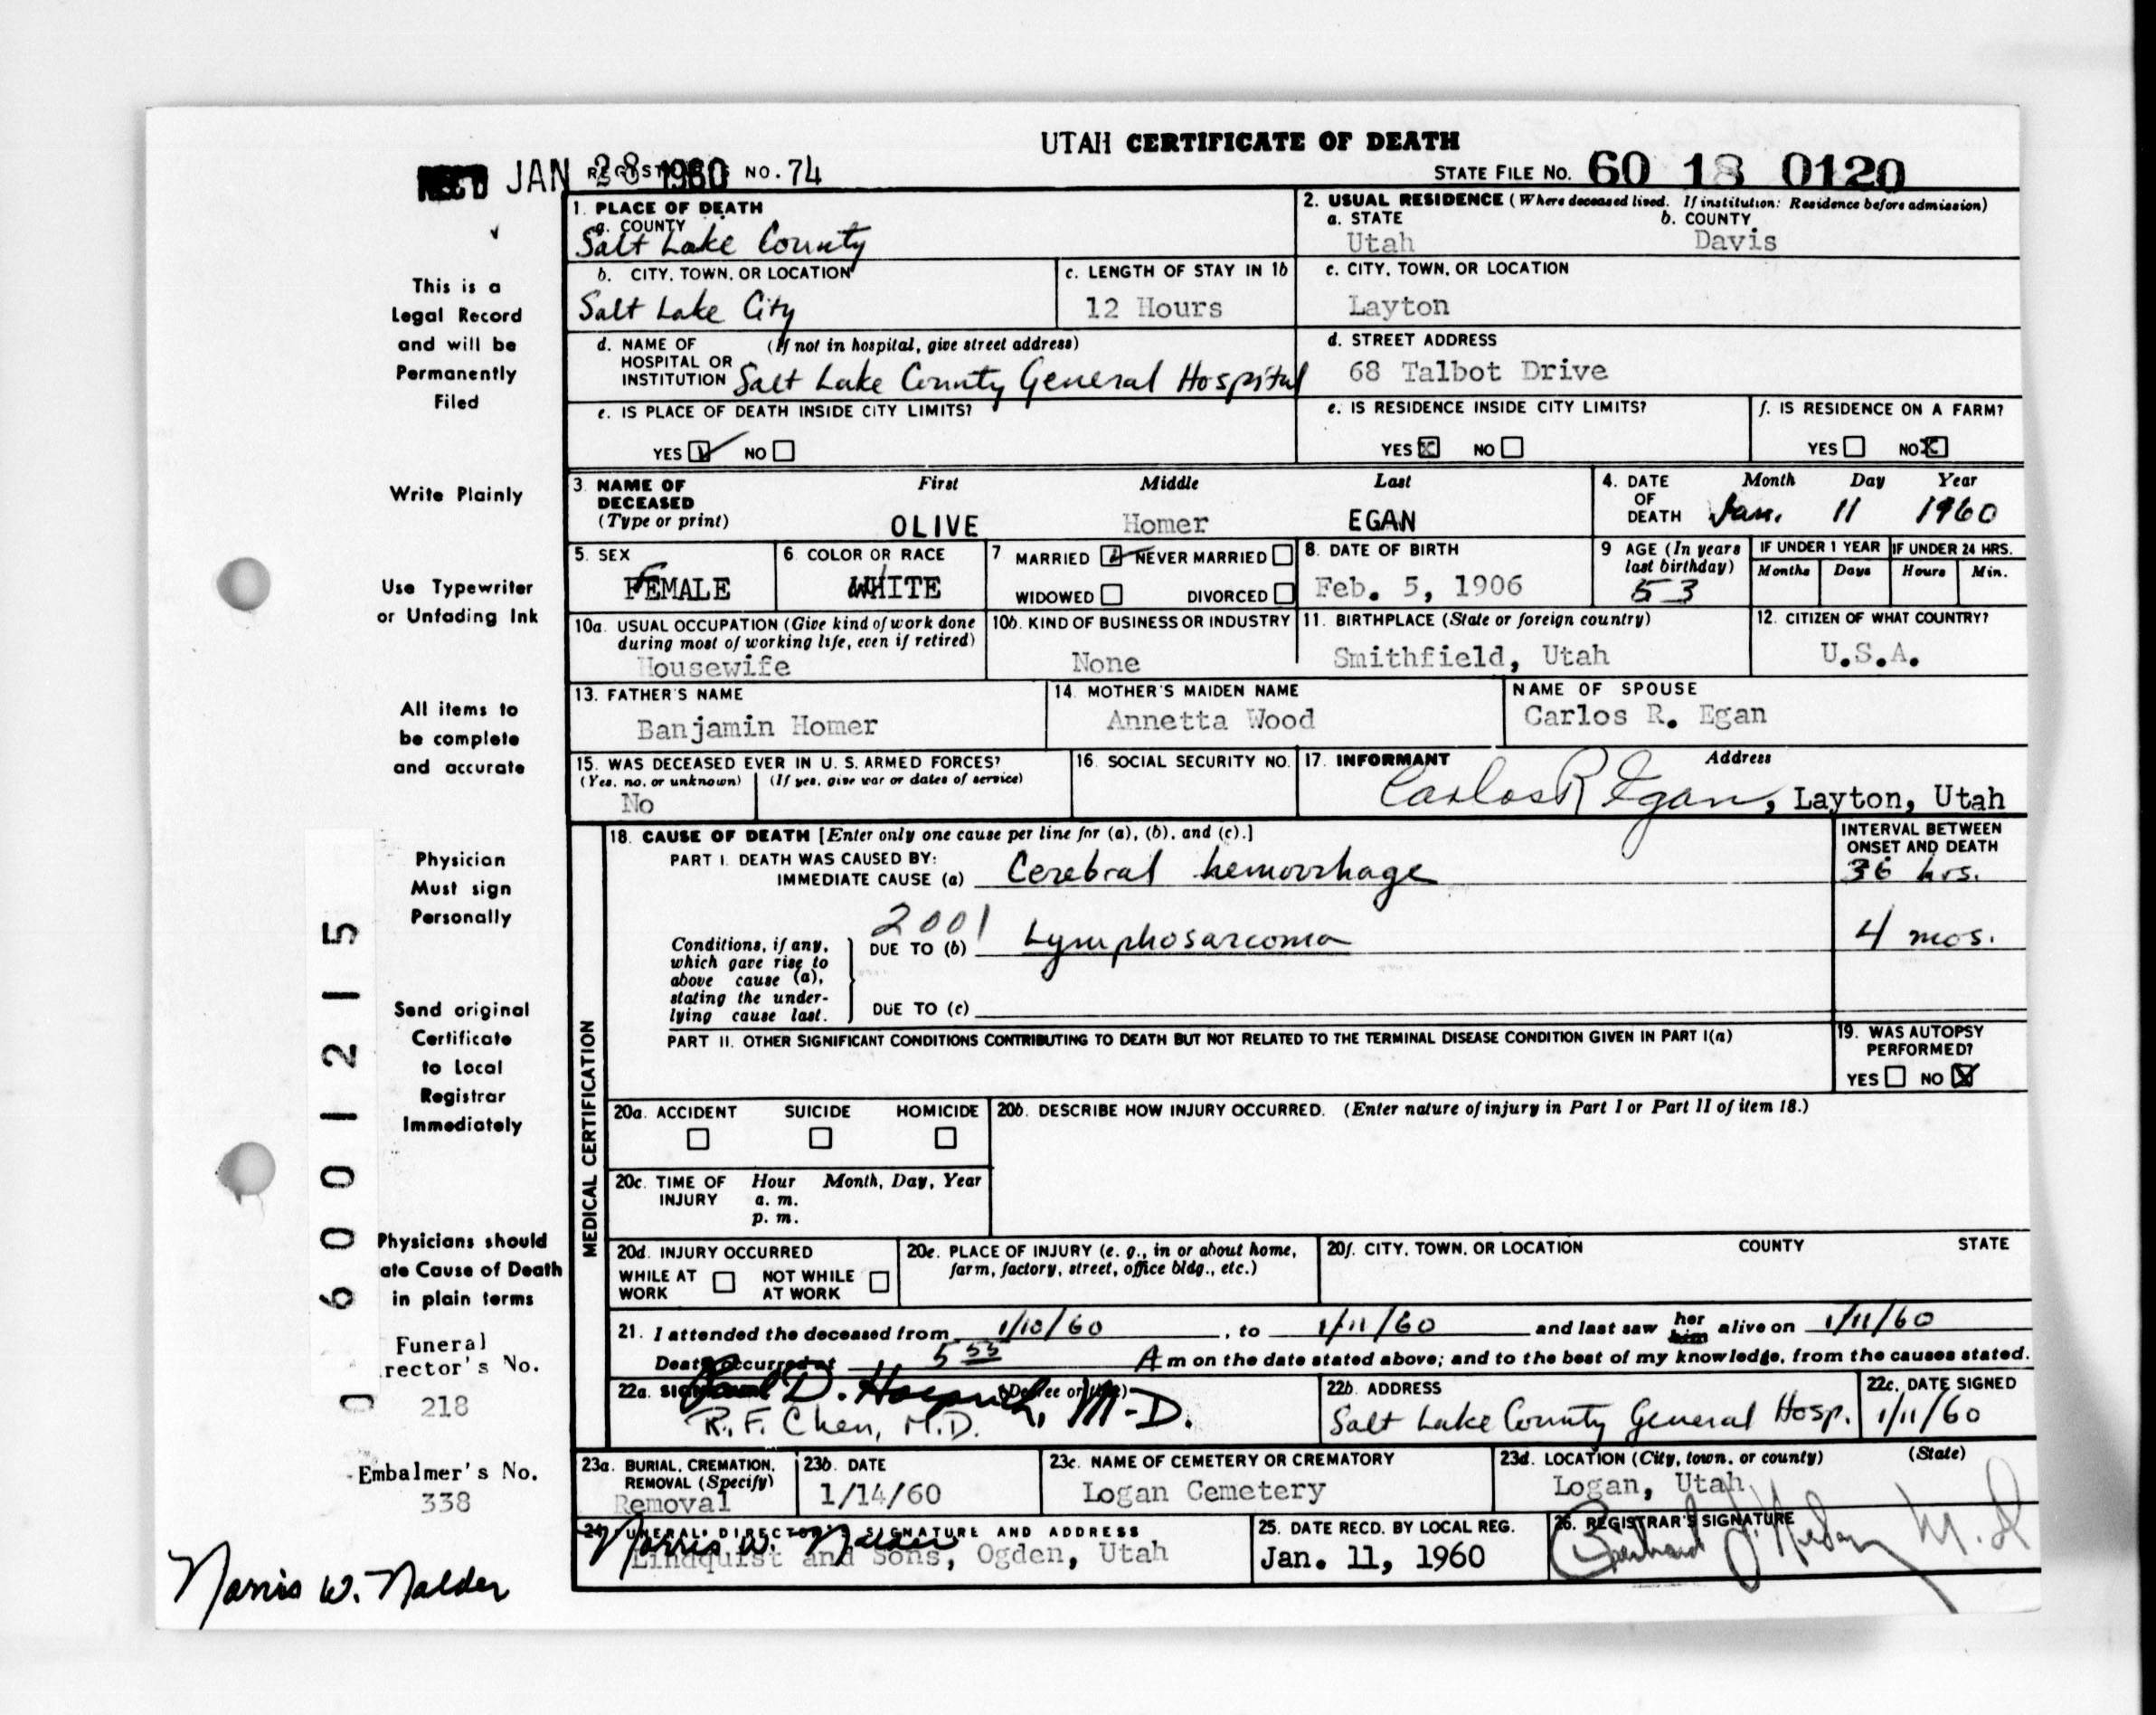 UTAH CERTIFICATE OF DEATH
REC'D JAN 28 1960 NO. 74
STATE FILE NO. 60 18 0120
This is a
Legal Record
and will be
Permanently
Filed
Write Plainly
Use Typewriter
or Unfading Ink
All items to
be complete
and accurate
Physician
Must sign
Personally
Send original
Certificate
to Local
Registrar
Immediately
Physicians should
ate Cause of Death
in plain terms
Funeral
rector's No.
218
Embalmer's No.
338
Norris W. Nalder
6001215
1. PLACE OF DEATH
a. COUNTY
Salt Lake County
2. USUAL RESIDENCE (Where deceased lived. If institution: Residence before admission)
a. STATE b. COUNTY
Utah Davis
b. CITY, TOWN, OR LOCATION
Salt Lake City
c. LENGTH OF STAY IN 1b
12 Hours
c. CITY, TOWN, OR LOCATION
Layton
d. NAME OF (If not in hospital, give street address)
HOSPITAL OR
INSTITUTION Salt Lake County General Hospital
d. STREET ADDRESS
68 Talbot Drive
e. IS PLACE OF DEATH INSIDE CITY LIMITS?
YES NO
e. IS RESIDENCE INSIDE CITY LIMITS?
YES X NO
f. IS RESIDENCE ON A FARM?
YES NO X
3. NAME OF DECEASED
(Type or print)
First Middle Last
OLIVE Homer EGAN
4. DATE OF DEATH
Month Day Year
Jan. 11 1960
5. SEX
FEMALE
6. COLOR OR RACE
WHITE
7. MARRIED NEVER MARRIED
WIDOWED DIVORCED
8. DATE OF BIRTH
Feb. 5, 1906
9 AGE (In years
last birthday)
53
IF UNDER 1 YEAR IF UNDER 24 HRS.
Months Days Hours Min.
10a. USUAL OCCUPATION (Give kind of work done
during most of working life, even if retired)
Housewife
10b. KIND OF BUSINESS OR INDUSTRY
None
11. BIRTHPLACE (State or foreign country)
Smithfield, Utah
12. CITIZEN OF WHAT COUNTRY?
U.S.A.
13. FATHER'S NAME
Banjamin Homer
14. MOTHER'S MAIDEN NAME
Annetta Wood
NAME OF SPOUSE
Carlos R. Egan
15. WAS DECEASED EVER IN U. S. ARMED FORCES?
(Yes, no, or unknown) (If yes, give war or dates of service)
No
16. SOCIAL SECURITY NO.
17. INFORMANT Address
Carlos R Egan, Layton, Utah
MEDICAL CERTIFICATION
18. CAUSE OF DEATH [Enter only one cause per line for (a), (b), and (c).]
INTERVAL BETWEEN
ONSET AND DEATH
PART I. DEATH WAS CAUSED BY:
IMMEDIATE CAUSE (a) Cerebral hemorrhage 36 hrs.
2001
Conditions, if any,
which gave rise to
above cause (a),
stating the under-
lying cause last.
DUE TO (b) Lymphosarcoma 4 mos.
DUE TO (c)
PART II. OTHER SIGNIFICANT CONDITIONS CONTRIBUTING TO DEATH BUT NOT RELATED TO THE TERMINAL DISEASE CONDITION GIVEN IN PART I(a)
19. WAS AUTOPSY
PERFORMED?
YES NO X
20a. ACCIDENT SUICIDE HOMICIDE
20b. DESCRIBE HOW INJURY OCCURRED. (Enter nature of injury in Part I or Part II of item 18.)
20c. TIME OF INJURY Hour Month, Day, Year
a. m.
p. m.
20d. INJURY OCCURRED
WHILE AT WORK NOT WHILE AT WORK
20e. PLACE OF INJURY (e. g., in or about home,
farm, factory, street, office bldg., etc.)
20f. CITY, TOWN, OR LOCATION COUNTY STATE
21. I attended the deceased from 1/10/60, to 1/11/60 and last saw her him alive on 1/11/60
Death occurred at 5 55 A m on the date stated above; and to the best of my knowledge, from the causes stated.
22a. SIGNATURE (Degree or title)
D. M.D.
R. F. Chen, M.D.
22b. ADDRESS
Salt Lake County General Hosp.
22c. DATE SIGNED
1/11/60
23a. BURIAL, CREMATION,
REMOVAL (Specify)
Removal
23b. DATE
1/14/60
23c. NAME OF CEMETERY OR CREMATORY
Logan Cemetery
23d. LOCATION (City, town, or county) (State)
Logan, Utah
24. FUNERAL DIRECTOR'S SIGNATURE AND ADDRESS
Norris W. Nalder
Lindquist and Sons, Ogden, Utah
25. DATE RECD. BY LOCAL REG.
Jan. 11, 1960
26. REGISTRAR'S SIGNATURE
M.D